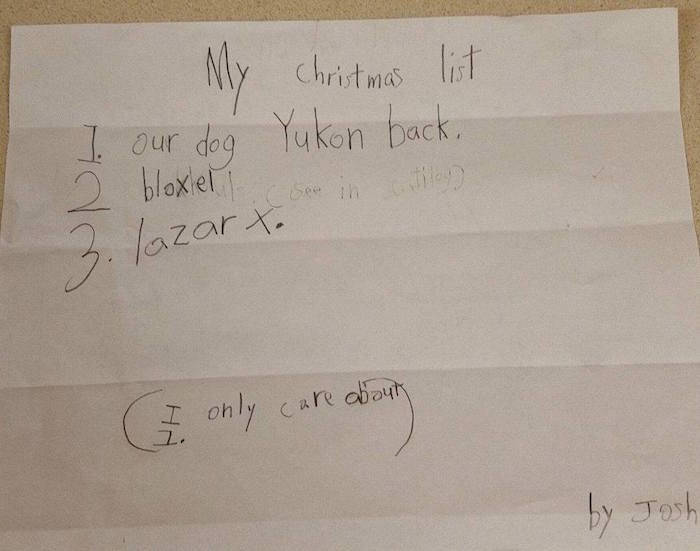 My christmas list
1. our dog Yukon back.
2 bloxlel (see in
3. lazar x.
(I only care about
1.)
by Josh